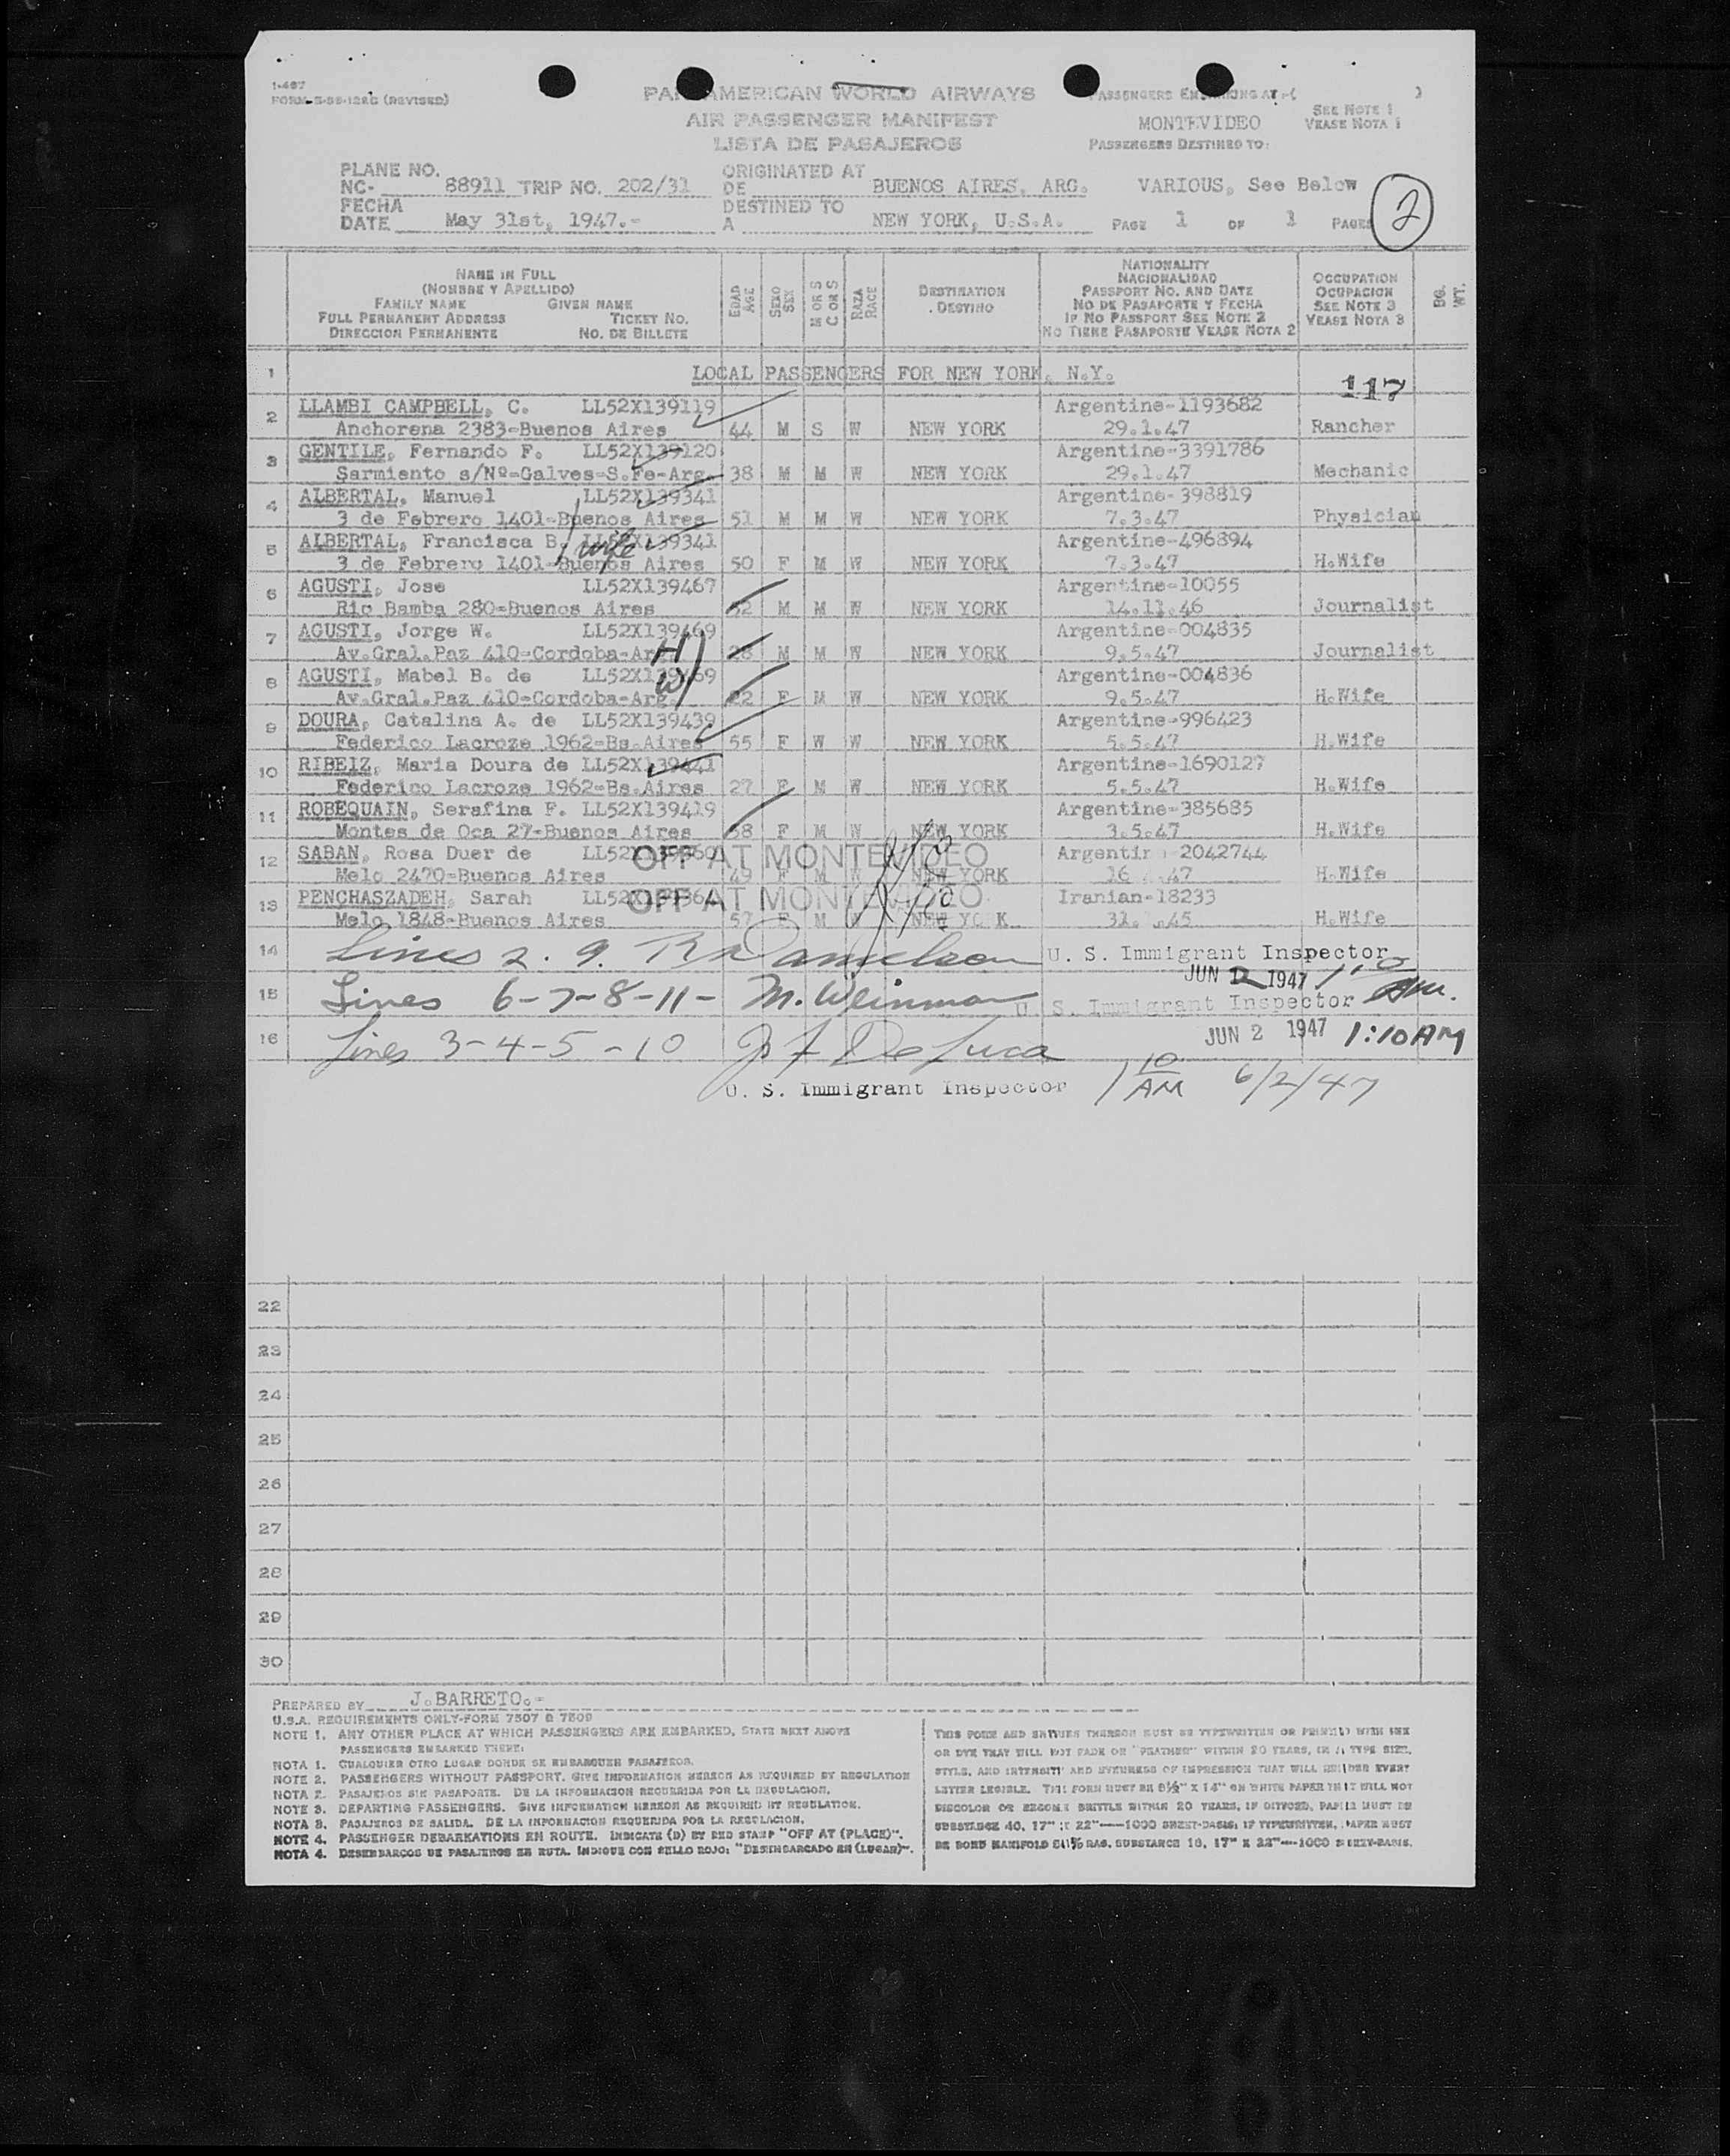 I-467
FORM-S-SS-122C (REVISED)
PAN AMERICAN WORLD AIRWAYS
AIR PASSENGER MANIFEST
LISTA DE PASAJEROS
PASSENGERS EMBARKING AT-( )
MONTEVIDEO
SEE NOTE 1
VEASE NOTA 1
PASSENGERS DESTINED TO:
PLANE NO.
NC- 88911 TRIP NO. 202/31
ORIGINATED AT
DE BUENOS AIRES, ARG.
VARIOUS, See Below
FECHA
DATE May 31st, 1947.-
DESTINED TO
A NEW YORK, U.S.A.
PAGE 1 OF 1 PAGES
2
NAME IN FULL
(NOMBRE Y APELLIDO)
FAMILY NAME GIVEN NAME
FULL PERMANENT ADDRESS TICKET NO.
DIRECCION PERMANENTE NO. DE BILLETE
EDAD
AGE
SEXO
SEX
M OR S
C O S
RAZA
RACE
DESTINATION
DESTINO
NATIONALITY
NACIONALIDAD
PASSPORT NO. AND DATE
NO DE PASAPORTE Y FECHA
IF NO PASSPORT SEE NOTE 2
NO TIENE PASAPORTE VEASE NOTA 2
OCCUPATION
OCUPACION
SEE NOTE 3
VEASE NOTA 3
BG.
WT.
1 LOCAL PASSENGERS FOR NEW YORK, N.Y.
117
2 LLAMBI CAMPBELL, C. LL52X139119 Argentine-1193682
Anchorena 2383-Buenos Aires 44 M S W NEW YORK 29.1.47 Rancher
3 GENTILE, Fernando F. LL52X139120 Argentine-3391786
Sarmiento s/Nº-Galves-S.Fe-Arg. 38 M M W NEW YORK 29.1.47 Mechanic
4 ALBERTAL, Manuel LL52X139341 Argentine-398819
3 de Febrero 1401-Buenos Aires 51 M M W NEW YORK 7.3.47 Physician
5 ALBERTAL, Francisca B. LL52X139341 Argentine-496894
wife
3 de Febrero 1401-Buenos Aires 50 F M W NEW YORK 7.3.47 H.Wife
6 AGUSTI, Jose LL52X139467 Argentine-10055
Rio Bamba 280-Buenos Aires 52 M M W NEW YORK 14.11.46 Journalist
7 AGUSTI, Jorge W. LL52X139469 Argentine-004835
Av.Gral.Paz 410-Cordoba-Arg. H 28 M M W NEW YORK 9.5.47 Journalist
8 AGUSTI, Mabel B. de LL52X139469 Argentine-004836
W
Av.Gral.Paz 410-Cordoba-Arg. 22 F M W NEW YORK 9.5.47 H.Wife
9 DOURA, Catalina A. de LL52X139439 Argentine-996423
Federico Lacroze 1962-Bs.Aires 55 F W W NEW YORK 5.5.47 H.Wife
10 RIBEIZ, Maria Doura de LL52X139441 Argentine-1690127
Federico Lacroze 1962-Bs.Aires 27 F M W NEW YORK 5.5.47 H.Wife
11 ROBEQUAIN, Serafina F. LL52X139419 Argentine-385685
Montes de Oca 27-Buenos Aires 58 F M W NEW YORK 3.5.47 H.Wife
12 SABAN, Rosa Duer de Argentine-2042744
OFF AT MONTEVIDEO
Melo 2470-Buenos Aires 49 F M W NEW YORK 16 47 H.Wife
13 PENCHASZADEH, Sarah Iranian-18233
OFF AT MONTEVIDEO
Melo 1848-Buenos Aires 57 F M W NEW YORK 31. .45 H.Wife
14 Lines 2. 9. R Danielson U. S. Immigrant Inspector
JUN 2 1947
15 Lines 6-7-8-11- M. Weinman U. S. Immigrant Inspector AM.
JUN 2 1947 1:10 AM
16 Lines 3-4-5-10 J F DeLuca
U. S. Immigrant Inspector 1 10 AM 6/2/47
22
23
24
25
26
27
28
29
30
PREPARED BY J.BARRETO.-
U.S.A. REQUIREMENTS ONLY-FORM 7507 & 7509
NOTE 1. ANY OTHER PLACE AT WHICH PASSENGERS ARE EMBARKED, STATE NEXT ABOVE
PASSENGERS EMBARKED THERE:
NOTA 1. CUALQUIER OTRO LUGAR DONDE SE EMBARQUEN PASAJEROS.
NOTE 2. PASSENGERS WITHOUT PASSPORT. GIVE INFORMATION HEREON AS REQUIRED BY REGULATION
NOTA 2. PASAJEROS SIN PASAPORTE. DE LA INFORMACION REQUERIDA POR LA REGULACION.
NOTE 3. DEPARTING PASSENGERS. GIVE INFORMATION HEREON AS REQUIRED BY REGULATION.
NOTA 3. PASAJEROS DE SALIDA. DE LA INFORMACION REQUERIDA POR LA REGULACION.
NOTE 4. PASSENGER DEBARKATIONS EN ROUTE. INDICATE (D) BY RED STAMP "OFF AT (PLACE)".
NOTA 4. DESEMBARCOS DE PASAJEROS EN RUTA. INDIQUE CON SELLO ROJO: "DESEMBARCADO EN (LUGAR)".
THIS FORM AND ENTRIES THEREON MUST BE TYPEWRITTEN OR PRINTED WITH INK
OR DYE THAT WILL NOT FADE OR "FEATHER" WITHIN 20 YEARS, IN A TYPE SIZE,
STYLE, AND INTENSITY AND EVENNESS OF IMPRESSION THAT WILL RENDER EVERY
LETTER LEGIBLE. THIS FORM MUST BE 8½" X 14" ON WHITE PAPER THAT WILL NOT
DISCOLOR OR BECOME BRITTLE WITHIN 20 YEARS, IF DITTOED, PAPER MUST BE
SUBSTANCE 40, 17" X 22"—1000 SHEET-BASIS; IF TYPEWRITTEN, PAPER MUST
BE BOND MANIFOLD 50% RAG, SUBSTANCE 16, 17" X 22"—1000 SHEET-BASIS.